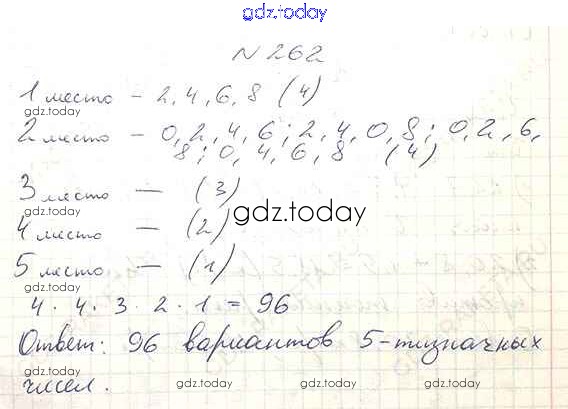 gdz.today
N 262
1 место - 2, 4, 6, 8 (4)
gdz.today
gdz.today
2 место - 0, 2, 4, 6; 2, 4, 0, 8; 0, 2, 6,
8; 0, 4, 6, 8 (4)
3 место - (3)
gdz.today
gdz.today
4 место - (2)
5 место - (1)
4 · 4 · 3 · 2 · 1 = 96
Ответ: 96 вариантов 5-тизначных
gdz.today
gdz.today
чисел.
gdz.today
gdz.today
gdz.today